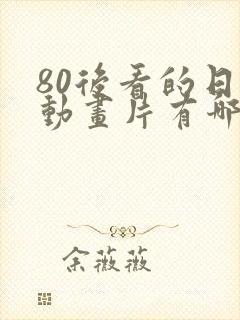 80後看的日
動畫片有哪
余薇薇